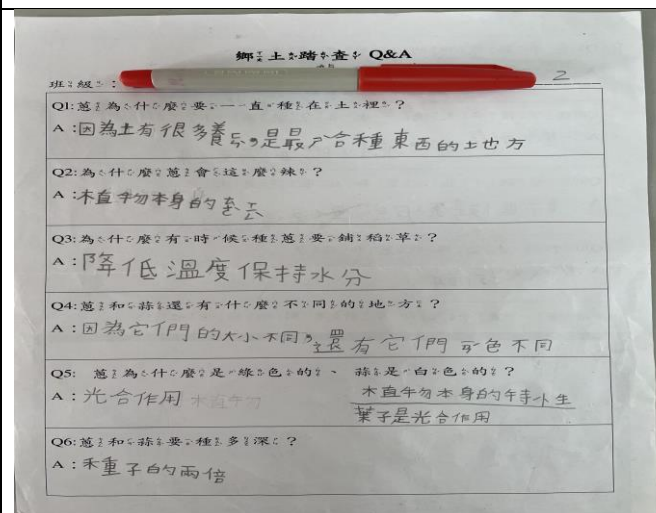 鄉土踏查 Q&A
班級： 2
Q1:蔥為什麼要一直種在土裡？
A：因為土有很多養ㄈㄣ，是最ㄕ合種東西的土地方
Q2:為什麼蔥會這麼辣？
A：植物本身的
Q3:為什麼有時候種蔥要鋪稻草？
A：降低溫度保持水分
Q4:蔥和蒜還有什麼不同的地方？
A：因為它們的大小不同，還有它們 色不同
Q5: 蔥為什麼是綠色的、 蒜是白色的？
A：光合作用 植物 植物本身的特ㄒㄧㄥ
葉子是光合作用
Q6:蔥和蒜要種多深？
A：種子的兩倍